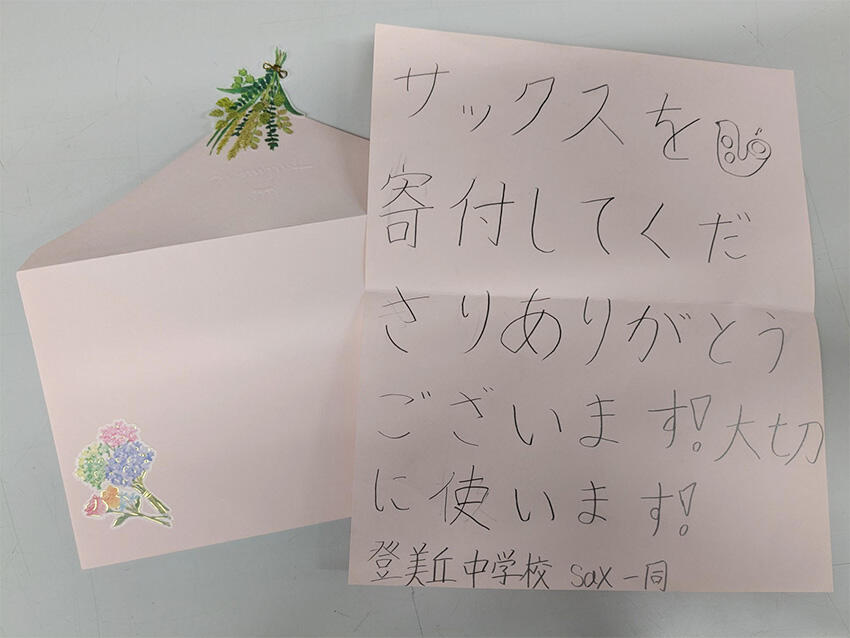 サックスを
寄付してくだ
さりありがとう
ございます!大切
に使います!
登美丘中学校 sax一同